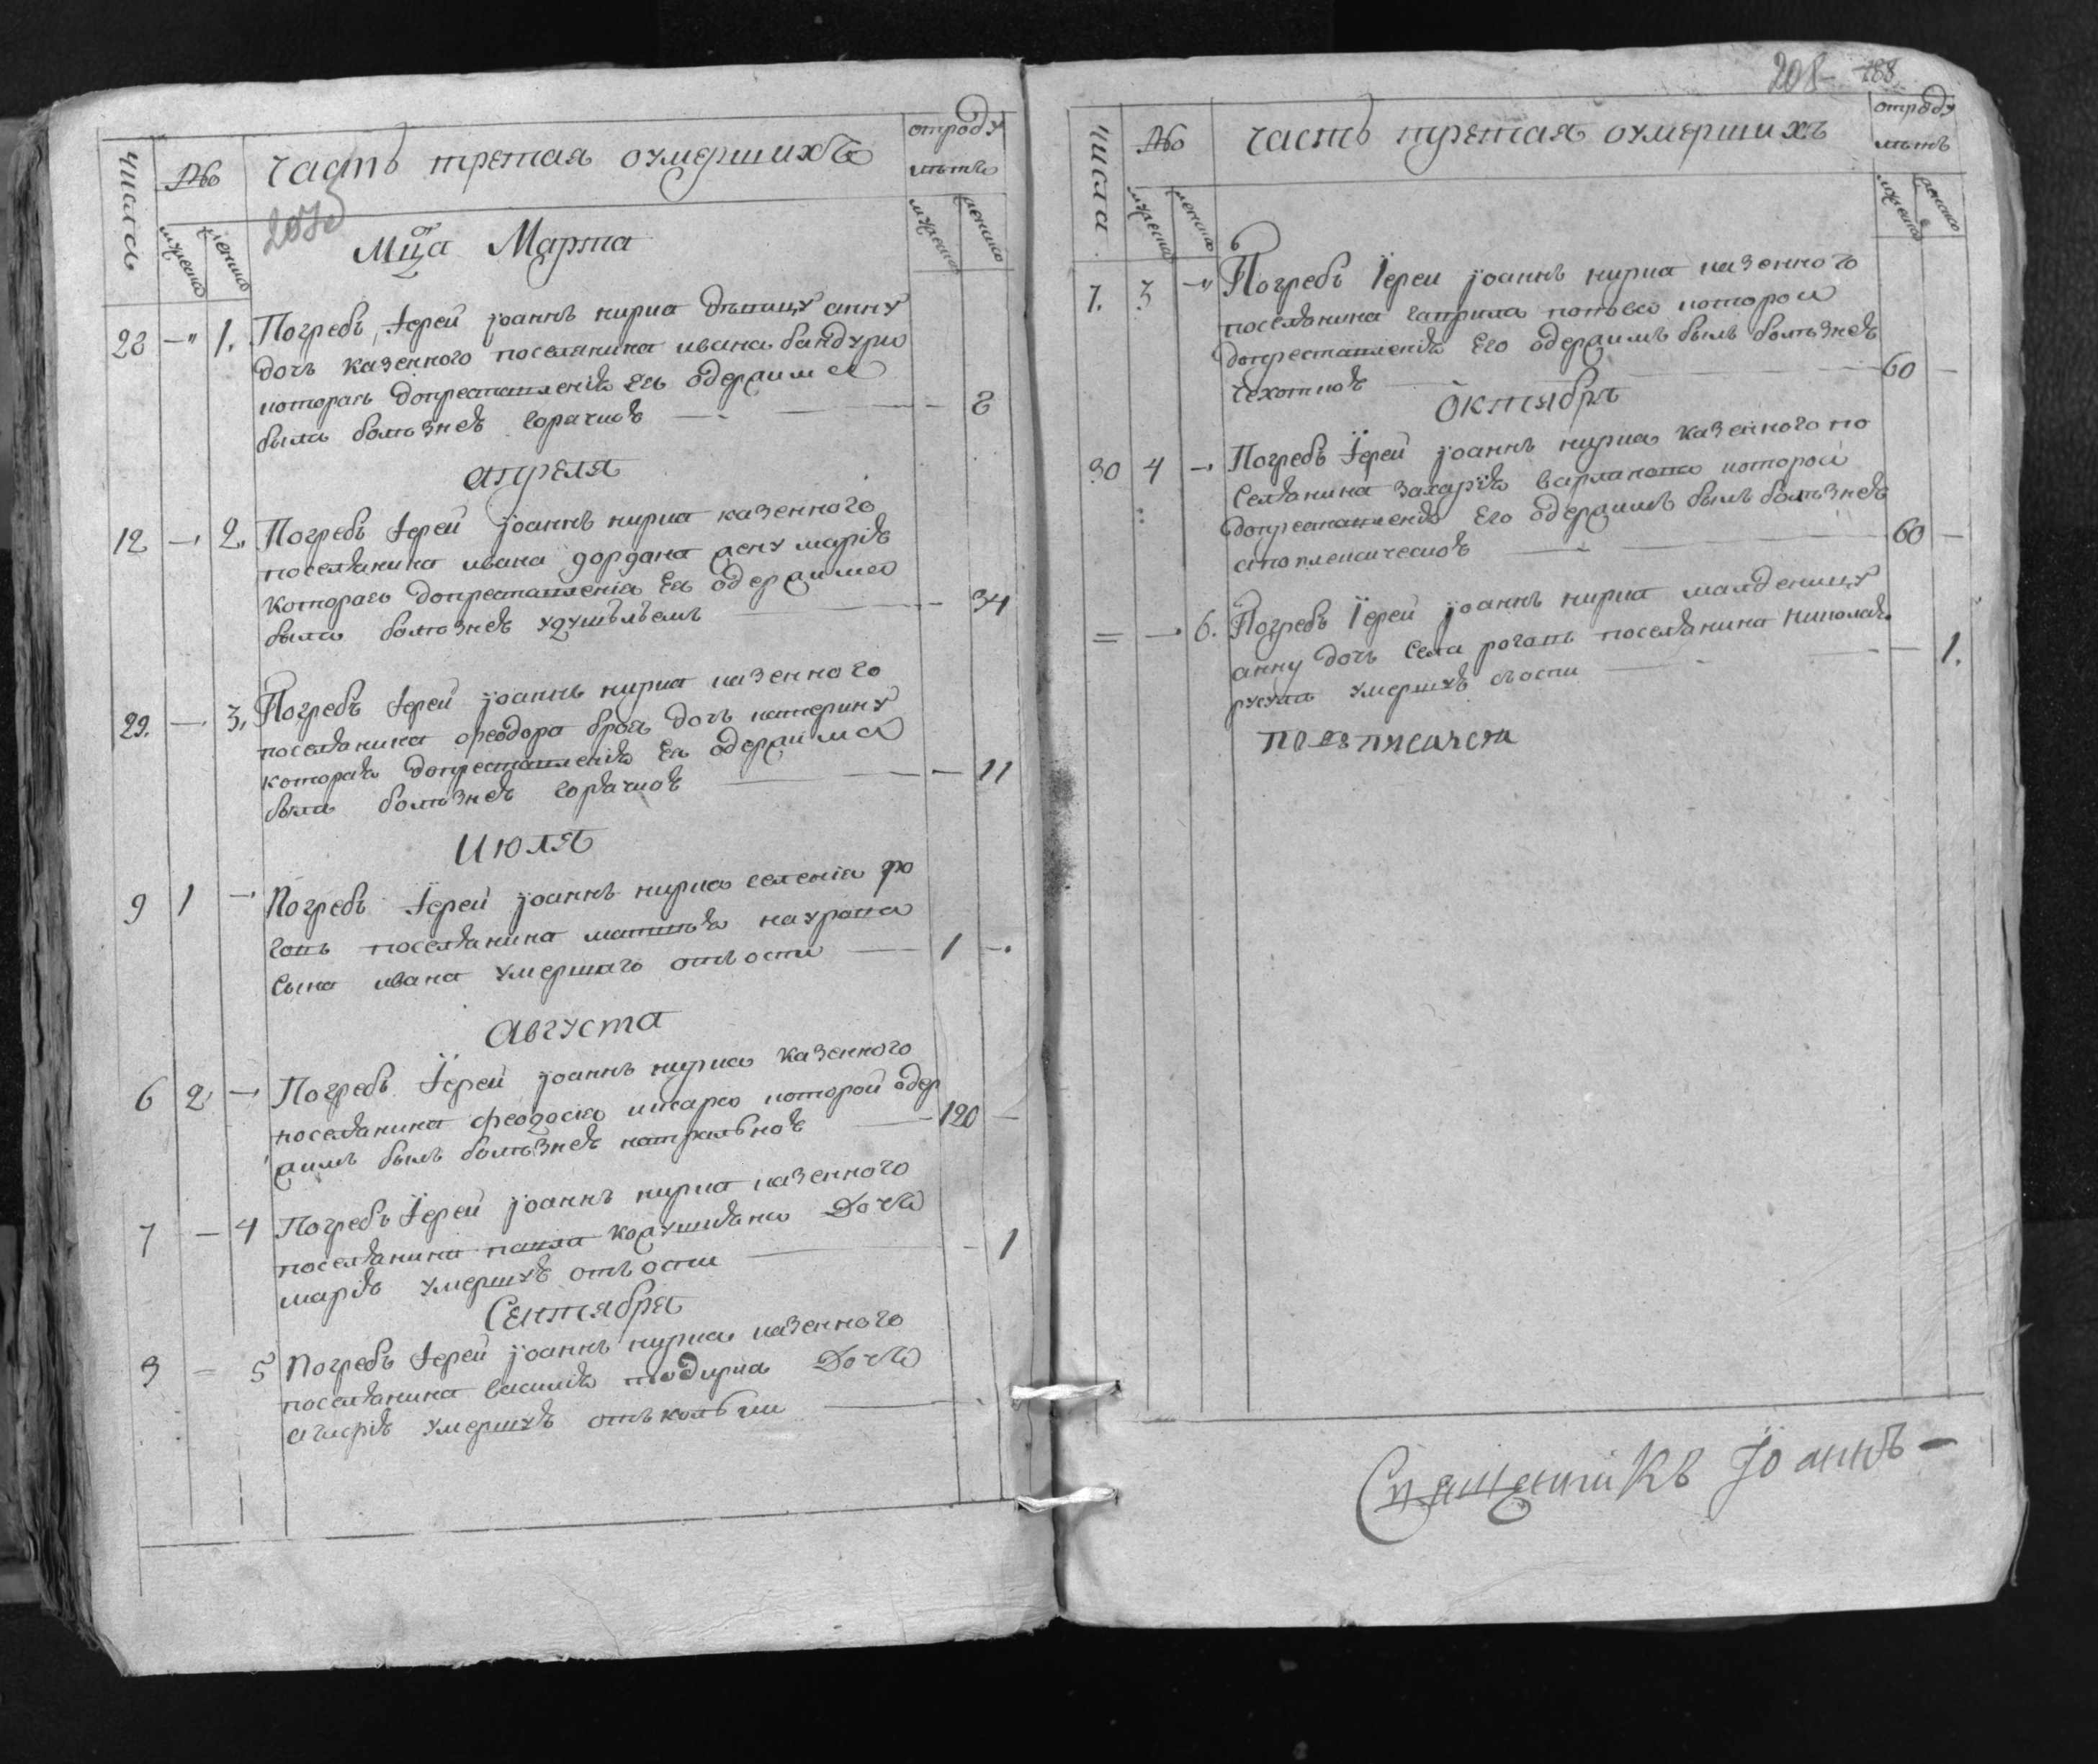 числа
№
часть третая оумершихъ
отроду
лѣтъ
мужеска
женска
мужеска
женска
207
Мц҃а Марта
23 —" 1. Погребъ Іерей іоаннъ кирка дѣвицу анну
дочь казенного поселянина ивана бандури
которая допреставленія Ея одержима
была болѣзнею горачкою — — 8
апреля
12 — 2. Погребъ Іерей іоаннъ кирка казенного
поселянина ивана дордана жену марію
котораю допреставленія Ея одержима
была болѣзнею удушьѣемъ — — 34
29. — 3. Погребъ Іерей іоаннъ кирка казенного
поселянина феодора дочь катерину
которая допреставленія Ея одержима
была болѣзнею горачкою — — 11
Июля
9 1 — Погребъ Іерей іоаннъ кирка селенія ро
гань поселянина матвѣя
сына ивана умершаго отъ оспи — 1 —.
Августа
6 2 — Погребъ Іерей іоаннъ кирка казенного
поселянина феодосія которой одер
жимъ былъ болѣзнею натральною — 120 —
7 — 4 Погребъ Іерей іоаннъ кирка казенного
поселянина павла дочь
марію умершую отъ оспи — — 1
Сентября
9 — 5 Погребъ Іерей іоаннъ кирка казенного
поселянина василія дочь
умершую отъ —
208 188
числа
№
часть третая оумершихъ
отроду
лѣтъ
мужеска
женска
мужеска
женска
7. 3 —" Погребъ Іереи іоаннъ кирка казенного
поселянина гаврила которои
допреставленія Его одержимъ былъ болѣзнею
чехоткою — 60 —
Октября
30 4 — Погребъ Іерей іоаннъ кирка казенного по
селянина захарія которой
допреставленія Его одержимъ былъ болѣзнею
апоплексическою — 60 —
= — 6. Погребъ Іерей іоаннъ кирка младеницу
анну дочь села рогань поселянина николая
умершую — — 1.
Священникъ Іоаннъ —